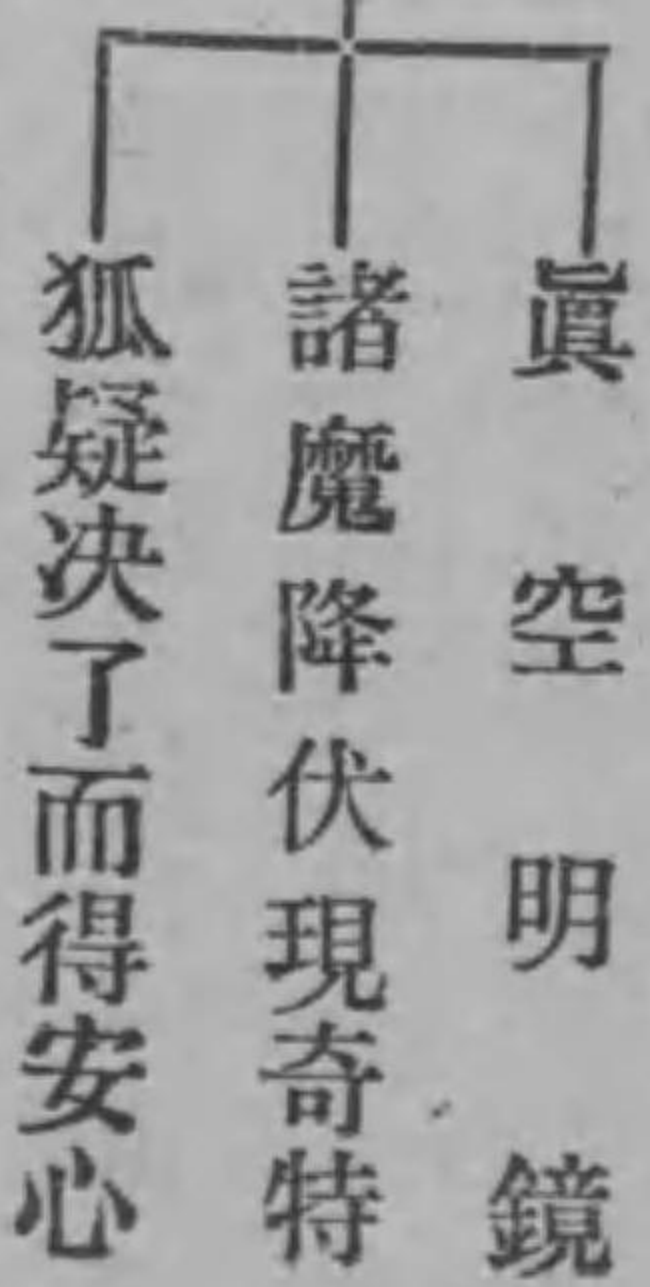 眞空明鏡
諸魔降伏現奇特
狐疑决了而得安心